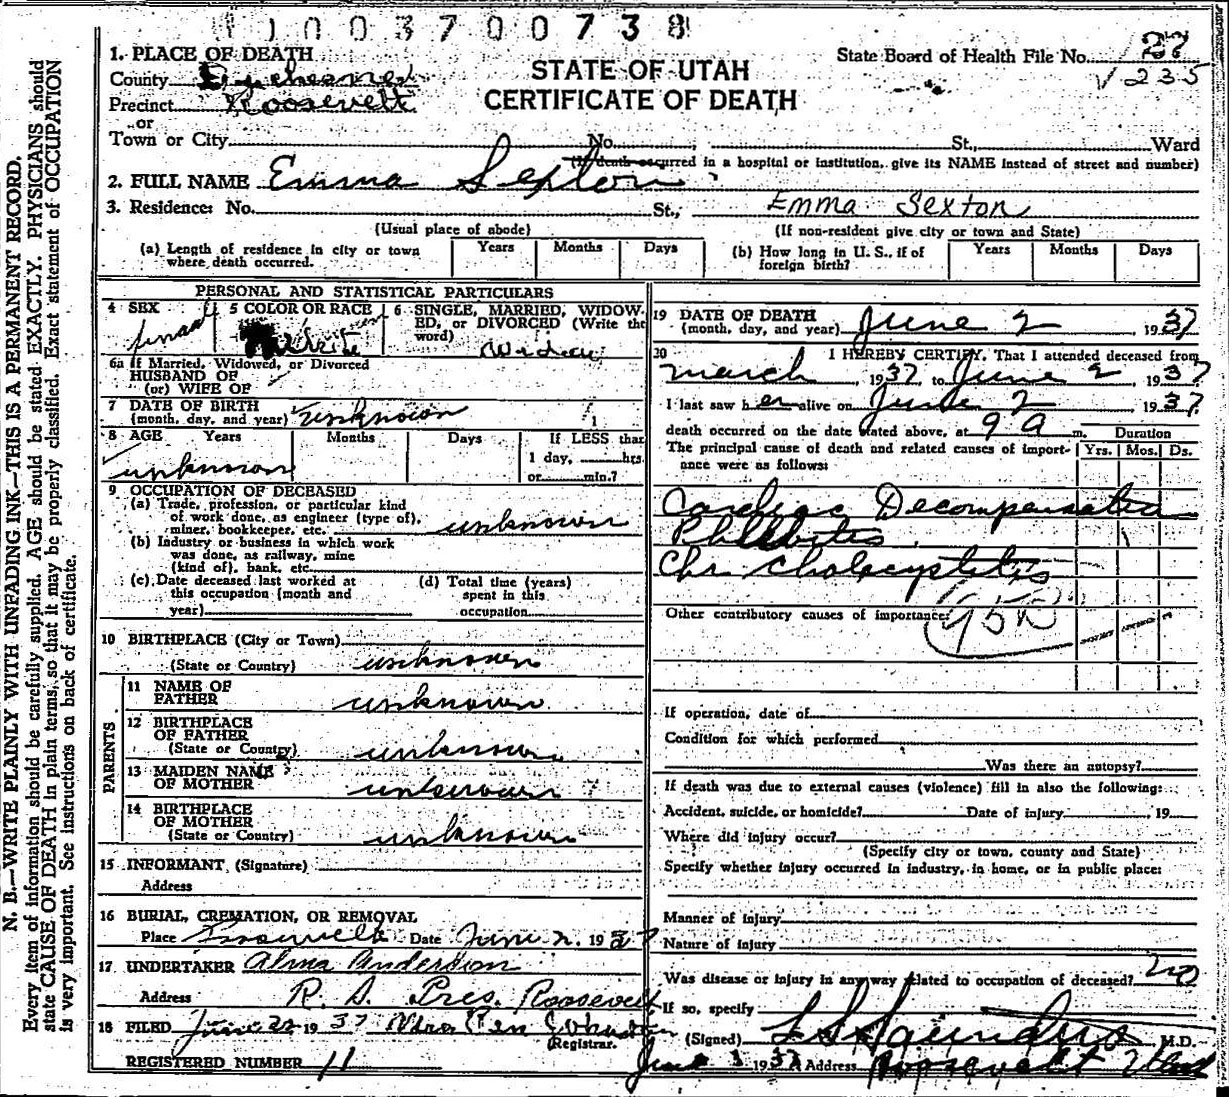 1003700738
1. PLACE OF DEATH
State Board of Health File No. 27
County Duchesne
STATE OF UTAH
√ 235
Precinct Roosevelt
CERTIFICATE OF DEATH
or
Town or City No. St., Ward
(If death occurred in a hospital or institution, give its NAME instead of street and number)
2. FULL NAME Emma Sexton
3. Residence: No. St., Emma Sexton
(Usual place of abode) (If non-resident give city or town and State)
(a) Length of residence in city or town where death occurred. Years Months Days
(b) How long in U. S., if of foreign birth? Years Months Days
PERSONAL AND STATISTICAL PARTICULARS
4 SEX female
5 COLOR OR RACE White
6 SINGLE, MARRIED, WIDOWED, or DIVORCED (Write the word) Widow
6a If Married, Widowed, or Divorced
HUSBAND OF
(or) WIFE OF
7 DATE OF BIRTH
(month, day, and year) unknown
8 AGE Years Months Days If LESS than
1 day, hrs.
or min.?
unknown
9 OCCUPATION OF DECEASED
(a) Trade, profession, or particular kind
of work done, as engineer (type of),
miner, bookkeeper, etc. unknown
(b) Industry or business in which work
was done, as railway, mine
(kind of), bank, etc.
(c) Date deceased last worked at
this occupation (month and
year)
(d) Total time (years)
spent in this
occupation
10 BIRTHPLACE (City or Town)
(State or Country) unknown
PARENTS
11 NAME OF
FATHER unknown
12 BIRTHPLACE
OF FATHER
(State or Country) unknown
13 MAIDEN NAME
OF MOTHER unknown
14 BIRTHPLACE
OF MOTHER
(State or Country) unknown
15 INFORMANT, (Signature)
Address
16 BURIAL, CREMATION, OR REMOVAL
Place Roosevelt Date June 2, 1937
17 UNDERTAKER Alma Anderson
Address R. S. Pres. Roosevelt
18 FILED June 22 1937 Mrs Ben Johnston
Registrar.
REGISTERED NUMBER 11
19 DATE OF DEATH
(month, day, and year) June 2 1937
20 I HEREBY CERTIFY, That I attended deceased from
March, 1937, to June 2, 1937
I last saw her alive on June 2 1937
death occurred on the date stated above, at 9 a m. Duration
The principal cause of death and related causes of importance were as follows: Yrs. Mos. Ds.
Cardiac Decompensation
Phlebitis
Chr Cholecystitis
Other contributory causes of importance:
95B
If operation, date of
Condition for which performed
Was there an autopsy?
If death was due to external causes (violence) fill in also the following:
Accident, suicide, or homicide? Date of injury , 19
Where did injury occur?
(Specify city or town, county and State)
Specify whether injury occurred in industry, in home, or in public place:
Manner of injury
Nature of injury
Was disease or injury in any way related to occupation of deceased? no
If so, specify
(Signed) L S Saunders M.D.
June 1937 Address Roosevelt Utah
N. B.—WRITE PLAINLY WITH UNFADING INK—THIS IS A PERMANENT RECORD.
Every item of information should be carefully supplied. AGE should be stated EXACTLY. PHYSICIANS should
state CAUSE OF DEATH in plain terms, so that it may be properly classified. Exact statement of OCCUPATION
is very important. See instructions on back of certificate.